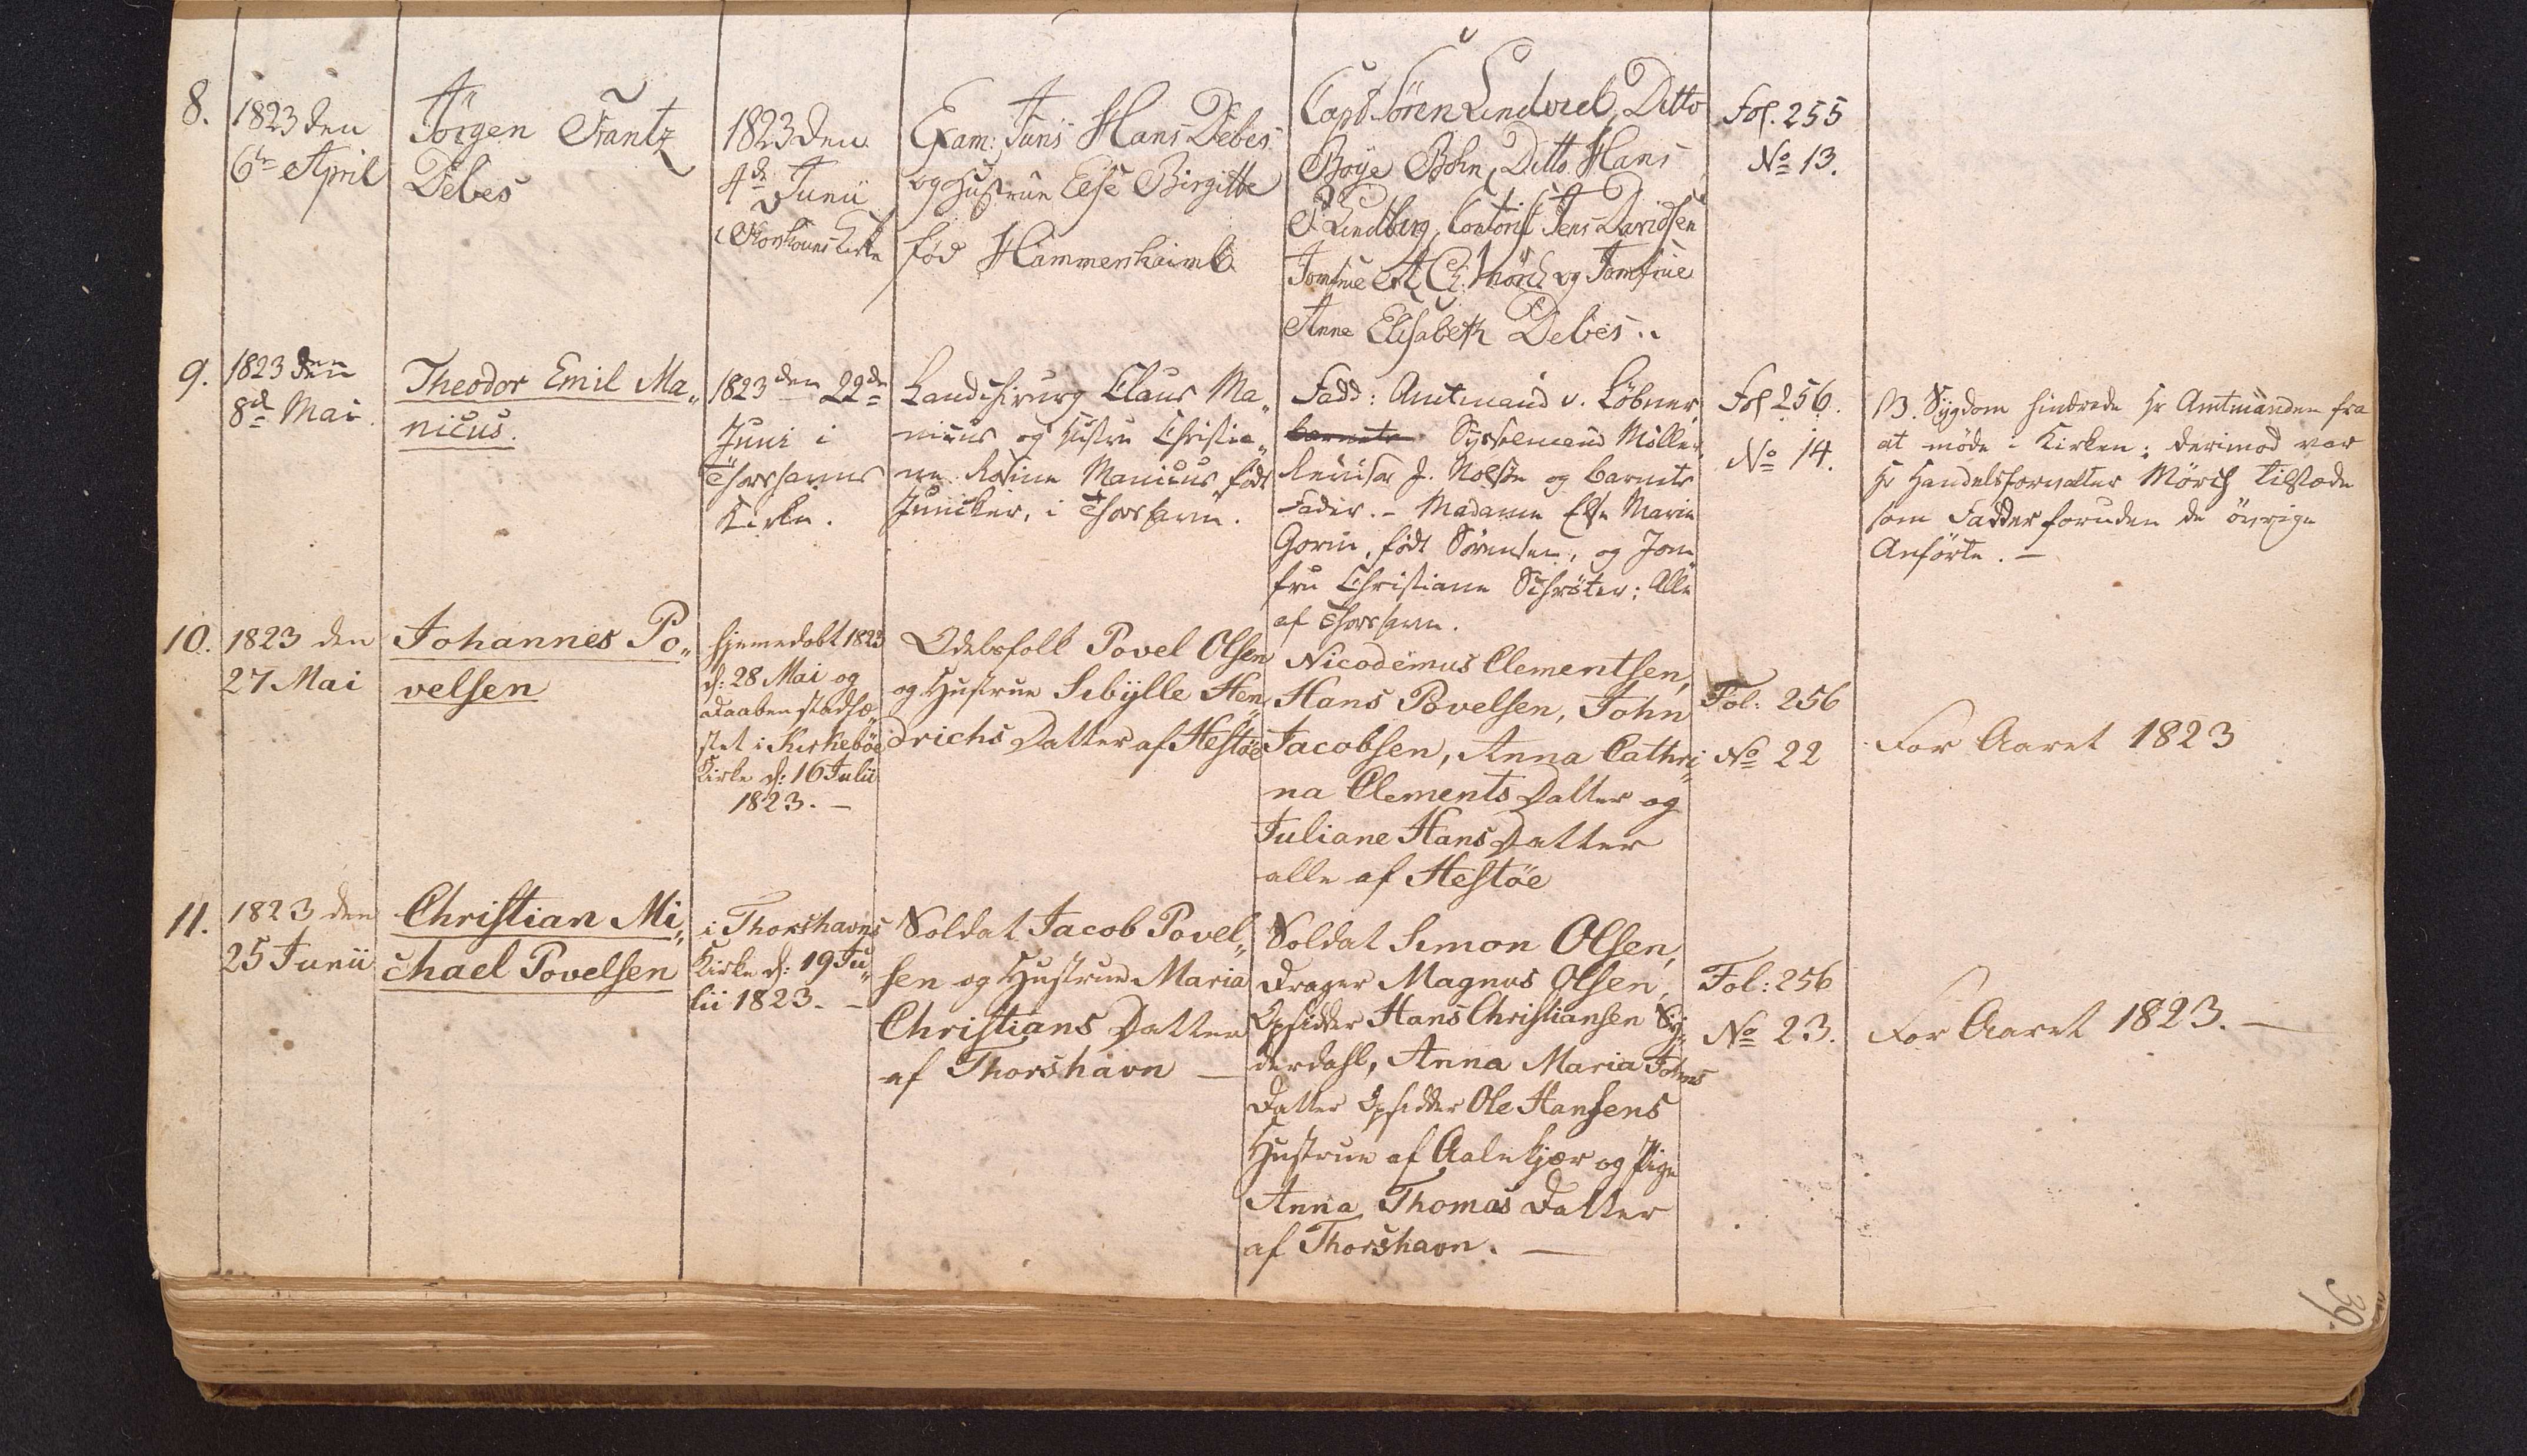 8.
1823 den
6te April
Jörgen Frantz
Debes
1823 den
4de Junii
i Thorshavns Kirke
Exam: Juris Hans Debes
og Hustrue Else Birgitte
fød Hammershaimb
Capt Sören Lindvieb, Ditto
Boye Bohn, Ditto Hans
P Lindberg, Contorist Jens Davidsen
Jomfrue Ch: Mörch og Jomfrue
Anne Elisabeth Debes..
Fol. 255
No 13.
9.
1823 den
8de Mai.
Theodor Emil Ma„
nicus.
1823 den 22de
Juni i
Thorshavns
Kirke.
Landchirurg Claus Ma„
nicus og Hustru Christia„
ne Rosine Manicus født
Juncker, i Thorshavn.
Fadd: Amtmand v. Löbner,
barnets Sysselmand Müller,
Revisor J. Nolsøe og Barnets
Fader. - Madame Else Marie
Gorm, født Sörensen, og Jom„
fru Christiane Schrøter; Alle
af Thorshavn.
Fol 256.
No 14.
NB. Sygdom hindrede Hr Amtmanden fra
at møde i Kirken; derimod var
Hr Handelsforvalter Mörch tilstæde
som Fadder foruden de övrige
Anførte. -
10.
1823 den
27 Mai
Johannes Po„
velsen
hjemedøbt 1823
d: 28 Mai og
Daaben stadfæ„
stet i Kirkebøe
Kirke d: 16 Julii
1823. -
Odelsfolk Povel Olsen
og Hustrue Sibylle Hen„
drichs Datter af Hestøe
Nicodemus Clementsen,
Hans Povelsen, John
Jacobsen, Anna Cathri„
na Clements Datter og
Juliane Hans Datter
alle af Hestøe
Fol: 256
No 22
For Aaret 1823
11.
1823 den
25 Junii
Christian Mi„
chael Povelsen
i Thorshavns
Kirke d: 19 Ju„
lii 1823. -
Soldat Jacob Povel„
sen og Hustrue Maria
Christians Datter
af Thorshavn -
Soldat Simon Olsen,
Drager Magnus Olsen,
Opsidder Hans Christiansen Sy„
derdahl, Anna Maria Johns
Datter Opsidder Ole Hansens
Hustrue af Aalekjær og Pige
Anna Thomas Datter
af Thorshavn. -
Fol: 256
No 23.
For Aaret 1823. -
39.